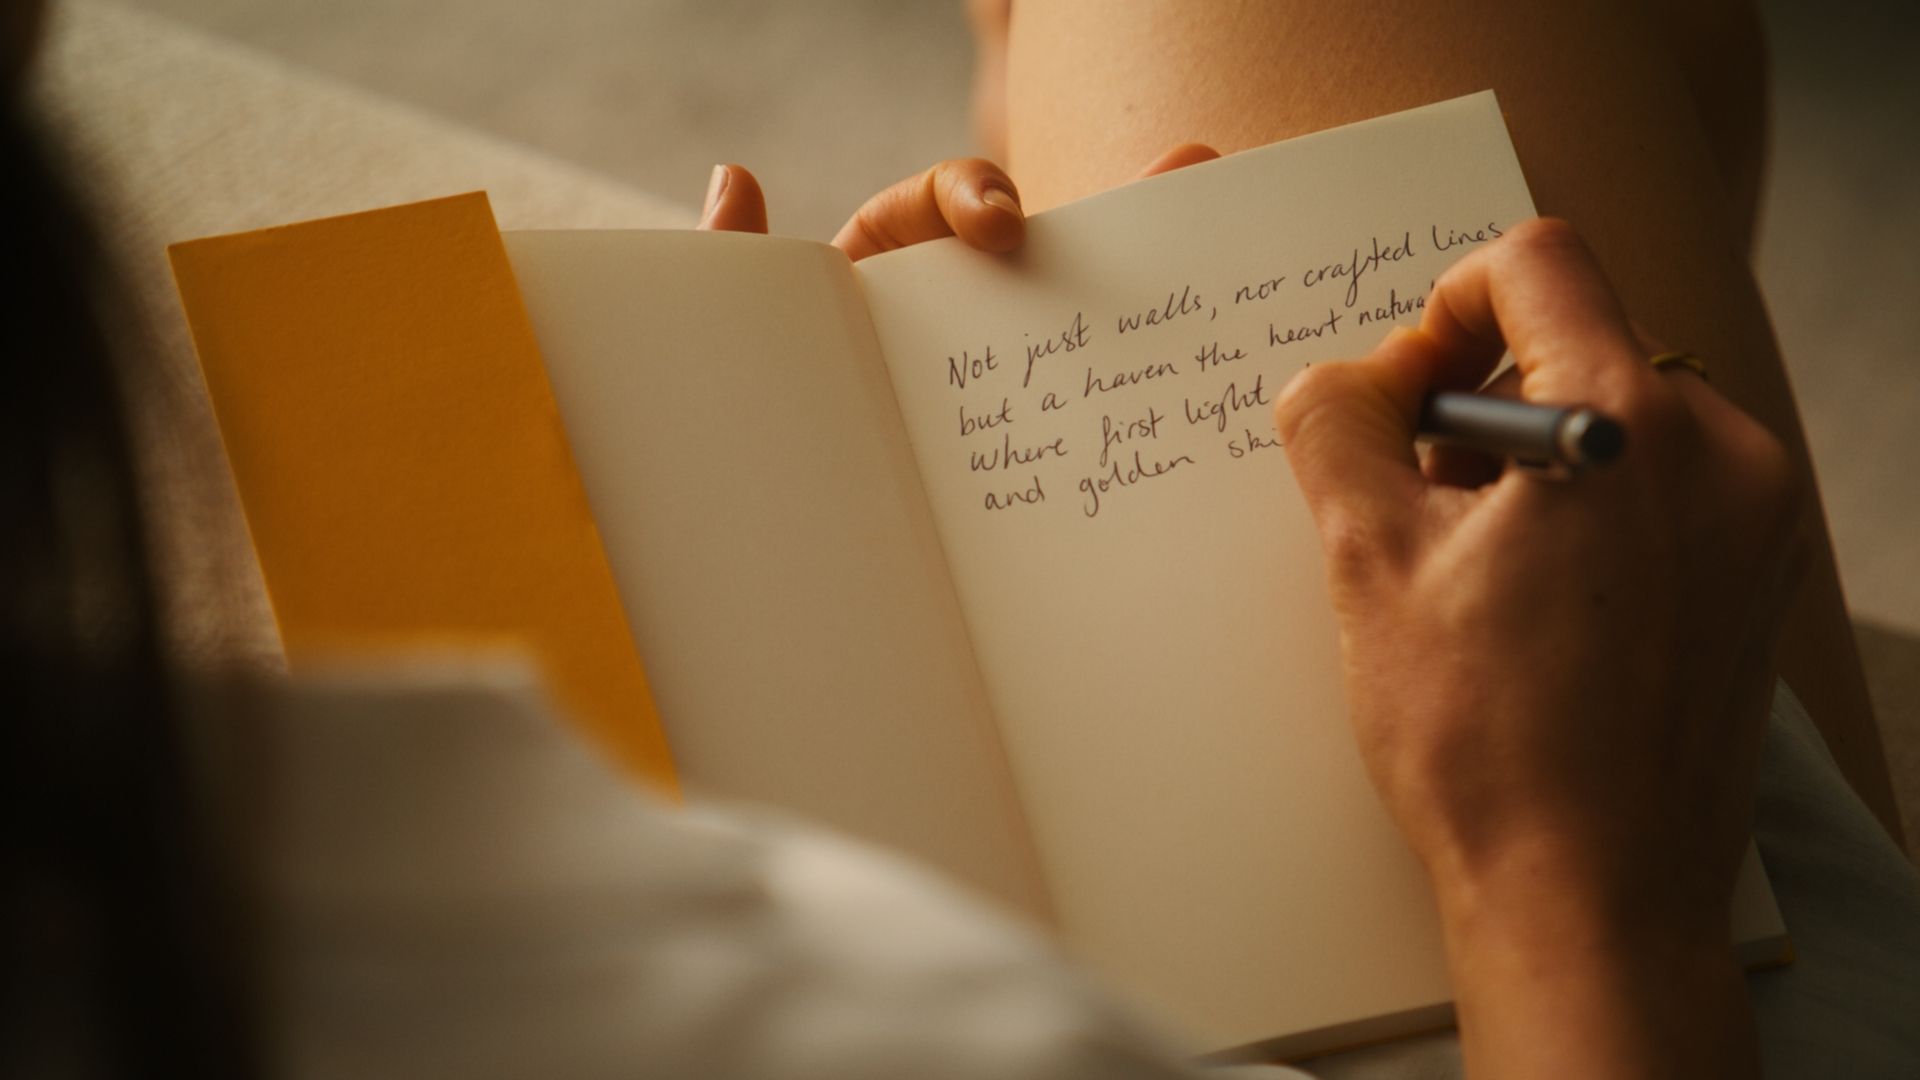 Not just walls, nor crafted lines
but a haven the heart
where first light
and golden